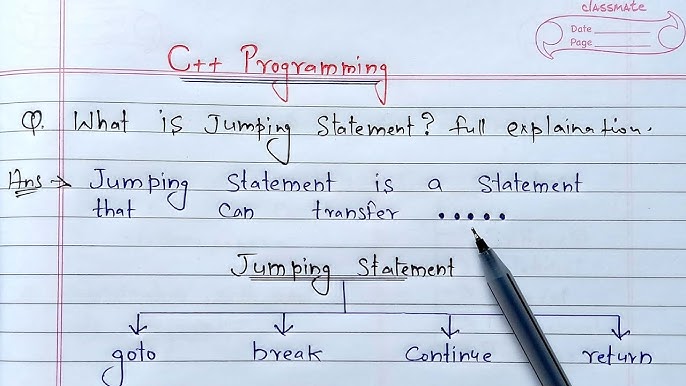 classmate
Date
Page
C++ Programming
Q. What is Jumping Statement? full explaination.
Ans → Jumping Statement is a Statement
that can transfer .....
Jumping Statement
goto break Continue return